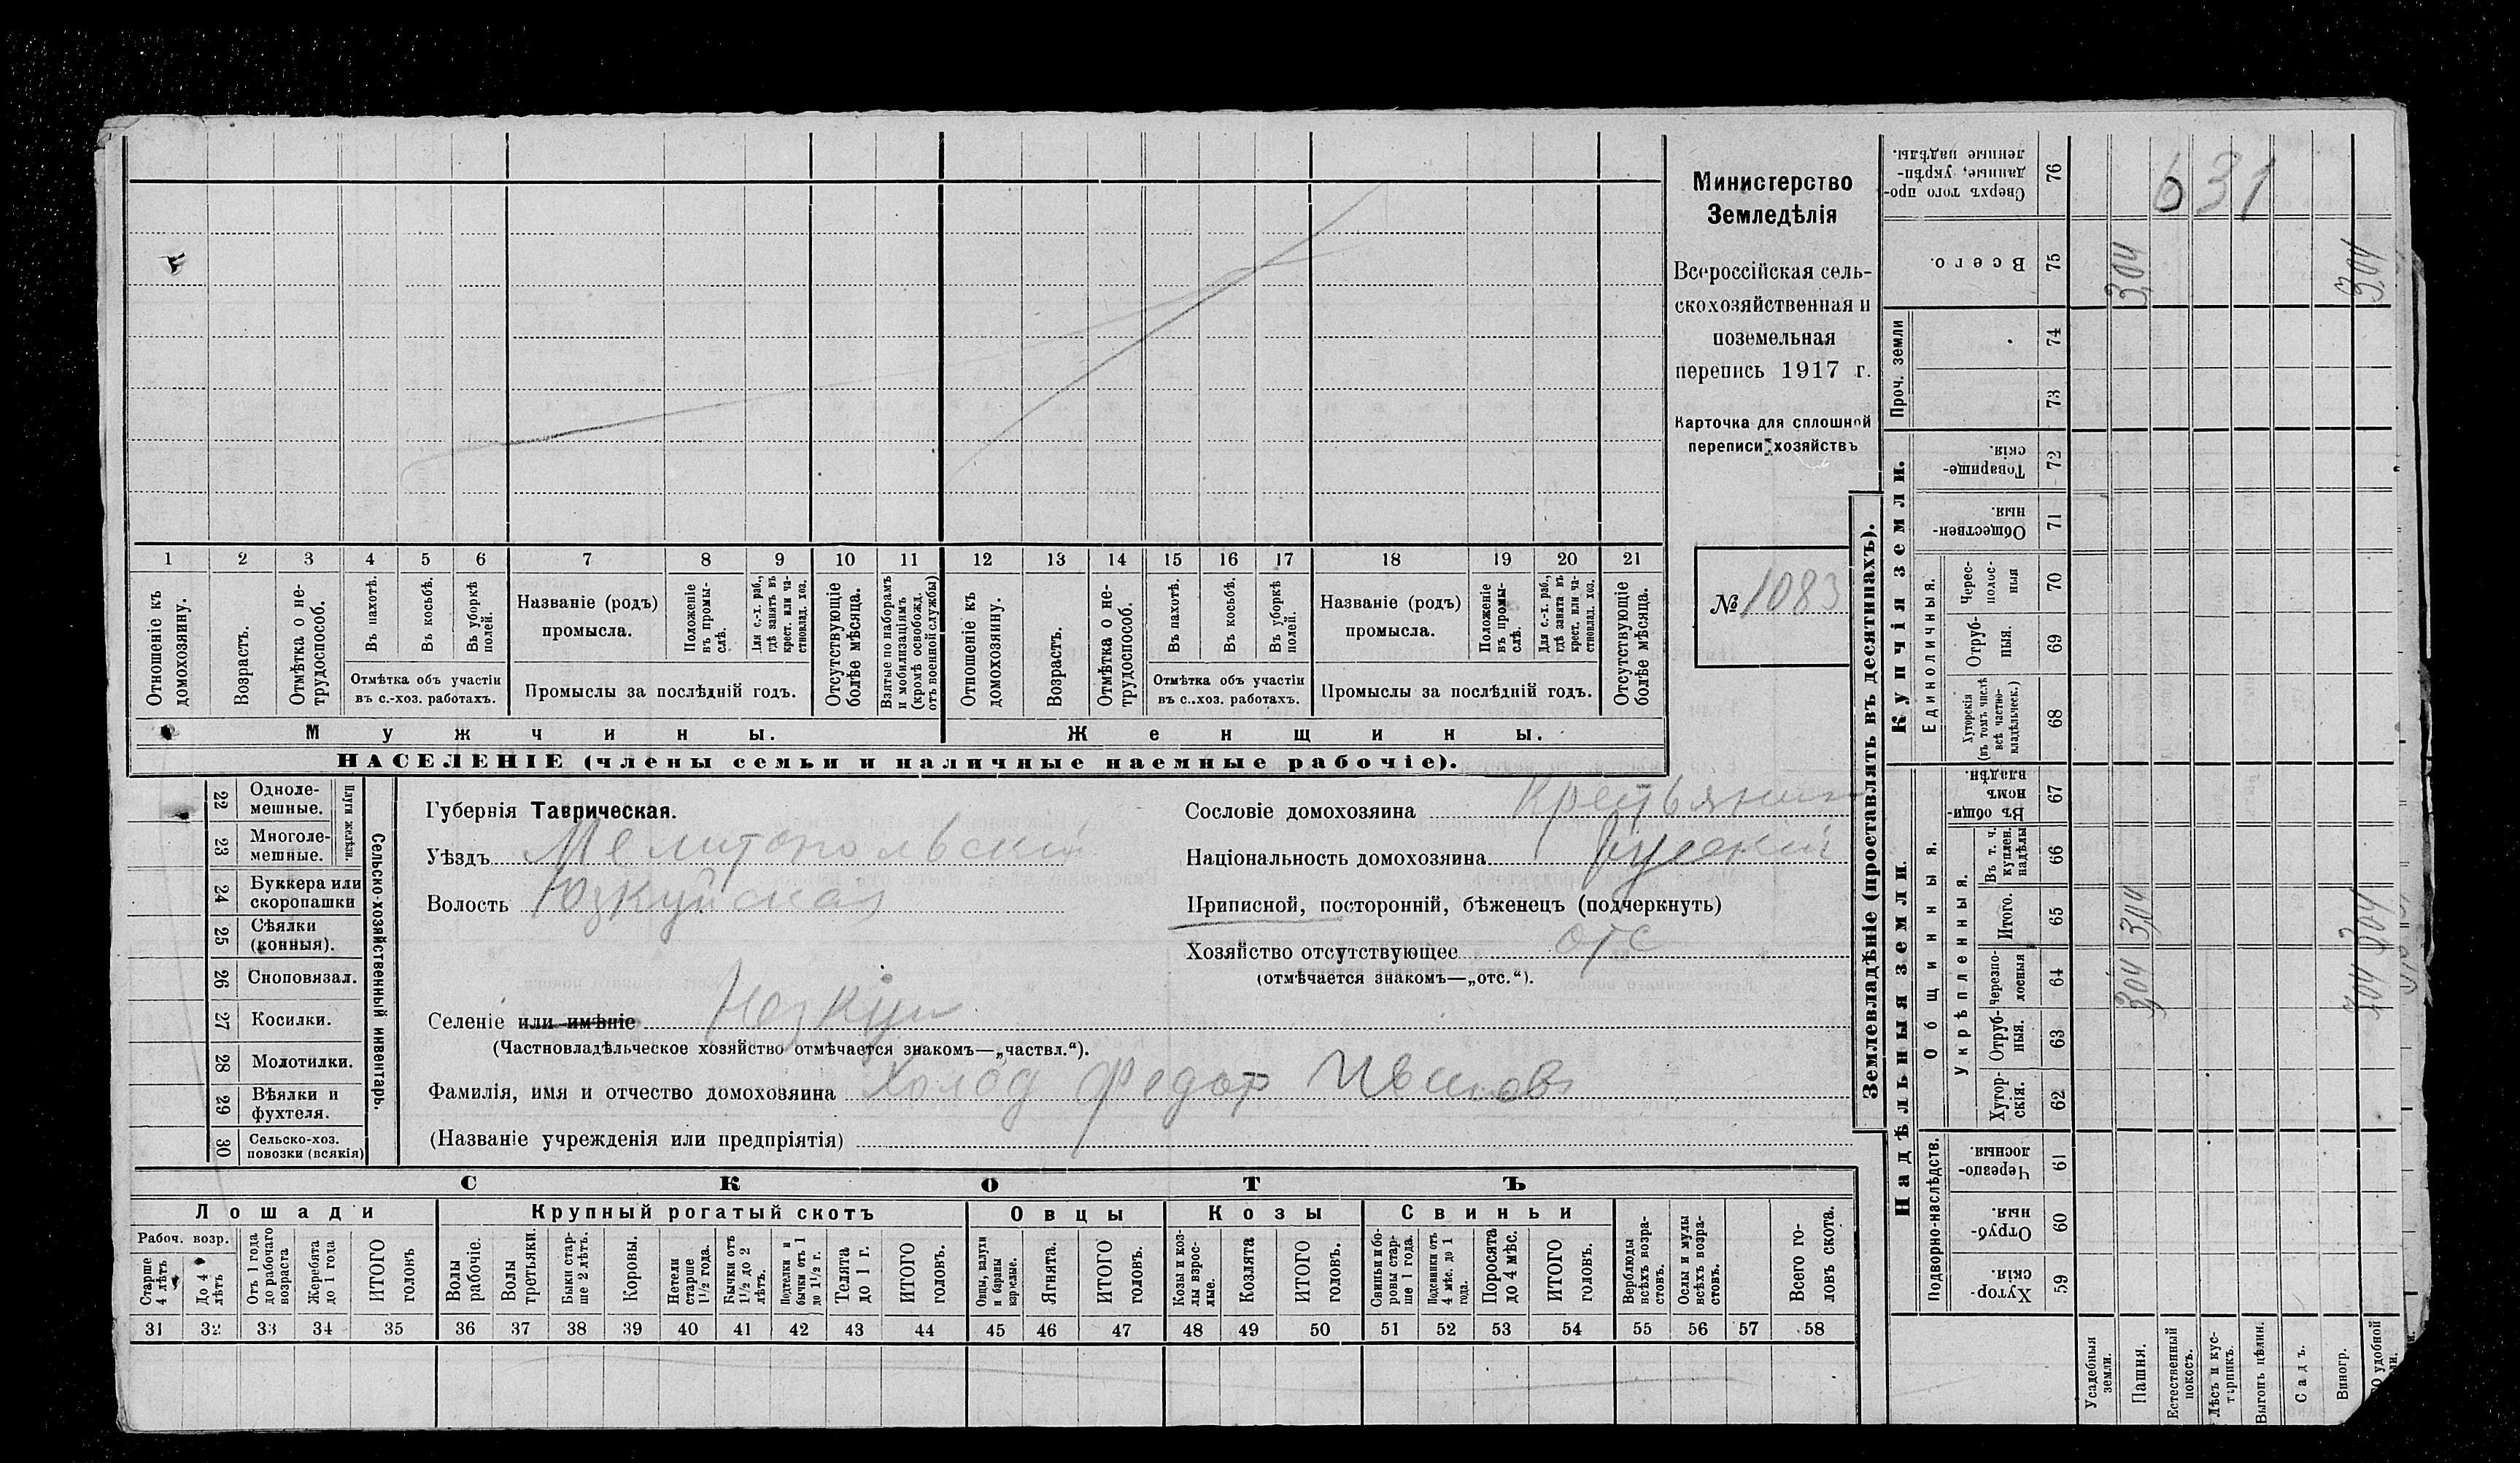 Министерство
Земледѣлія
Всероссійская сель-
скохозяйственная и
поземельная
перепись 1917 г.
Карточка для сплошной
переписи хозяйствъ
№ 1083
1 2 3 4 5 6 7 8 9 10 11 12 13 14 15 16 17 18 19 20 21
Отношеніе къ домохозяину.
Возрастъ.
Отмѣтка о не-трудоспособ.
Въ пахотѣ.
Въ косьбѣ.
Въ уборкѣ полей.
Отмѣтка объ участіи
въ с.-хоз. работахъ.
Названіе (родъ)
промысла.
Положеніе въ промы-слѣ.
Для с.-х. раб., гдѣ занятъ въ крест. или ча-стновлад. хоз.
Промыслы за послѣдній годъ.
Отсутствующіе болѣе мѣсяца.
Взятые по наборамъ и мобилизаціямъ (кромѣ освобожд. отъ военной службы)
Отношеніе къ домохозяину.
Возрастъ.
Отмѣтка о не-трудоспособ.
Въ пахотѣ.
Въ косьбѣ.
Въ уборкѣ полей.
Отмѣтка объ участіи
въ с.-хоз. работахъ.
Названіе (родъ)
промысла.
Положеніе въ промы-слѣ.
Для с.-х. раб., гдѣ занята въ крест. или ча-стновлад. хоз.
Промыслы за послѣдній годъ.
Отсутствующіе болѣе мѣсяца.
Мужчины.
Женщины.
НАСЕЛЕНІЕ (члены семьи и наличные наемные рабочіе).
22 Одноле-мешные.
23 Многоле-мешные.
Плуги желѣзн.
24 Буккера или скоропашки
25 Сѣялки (конныя).
26 Сноповязал.
27 Косилки.
28 Молотилки.
29 Вѣялки и фухтеля.
30 Сельско-хоз. повозки (всякія)
Сельско-хозяйственный инвентарь.
Губернія Таврическая.
Уѣздъ Мелитопольскій
Волость Юзкуйская
Селеніе или имѣніе Юзкуи
(Частновладѣльческое хозяйство отмѣчается знакомъ—„частвл.“).
Фамилія, имя и отчество домохозяина Холод Федор Ивановъ
(Названіе учрежденія или предпріятія)
Сословіе домохозяина Крестьянин
Національность домохозяина Русскій
Приписной, посторонній, бѣженецъ (подчеркнуть)
Хозяйство отсутствующее отс
(отмѣчается знакомъ—„отс.“).
СКОТЪ
Лошади
Крупный рогатый скотъ
Овцы
Козы
Свиньи
Рабоч. возр.
Старше 4 лѣтъ
До 4 лѣтъ
Отъ 1 года до рабочаго возраста
Жеребята до 1 года
ИТОГО головъ
Волы рабочіе.
Волы третьяки.
Быки стар-ше 2 лѣтъ.
Коровы.
Нетели старше 1½ года.
Бычки отъ 1½ до 2 лѣтъ.
Подтелки и бычки отъ 1 до 1½ г.
Телята до 1 г.
ИТОГО головъ.
Овцы, валухи и бараны взрослые.
Ягнята.
ИТОГО головъ.
Козы и коз-лы взрос-лые.
Козлята
ИТОГО головъ.
Свиньи и бо-ровы стар-ше 1 года.
Подсвинки отъ 4 мѣс. до 1 года.
Поросята до 4 мѣс.
ИТОГО головъ.
Верблюды всѣхъ возра-стовъ.
Ослы и мулы всѣхъ возра-стовъ.
Всего го-ловъ скота.
31 32 33 34 35 36 37 38 39 40 41 42 43 44 45 46 47 48 49 50 51 52 53 54 55 56 57 58
Землевладѣніе (проставлять въ десятинахъ).
Надѣльныя земли.
Купчія земли.
Проч. земли
Подворно-наслѣдств.
Общинныя.
Укрѣпленныя.
Единоличныя.
Сверхъ того про-данные, укрѣп-ленные надѣлы. 76
Всего. 75
74
73
Товарище-скія. 72
Обществен-ныя. 71
Черес-полос-ныя 70
Отруб-ныя. 69
Хуторскія (въ томъ числѣ всѣ частно-владѣльческ.) 68
Въ общин-номъ владѣн. 67
Въ т. ч. куплен. надѣлы 66
Итого. 65
Черезпо-лосныя 64
Отруб-ныя. 63
Хутор-скія. 62
Черезпо-лосныя. 61
Отруб-ныя. 60
Хутор-скія. 59
Усадебныя земли.
Пашня.
Естественный покосъ.
Лѣсъ и кус-тарникъ.
Выгонъ цѣлин.
Садъ.
Виногр.
удобной
631
3,04
3,04
3,04
3,04
3,04
3,04